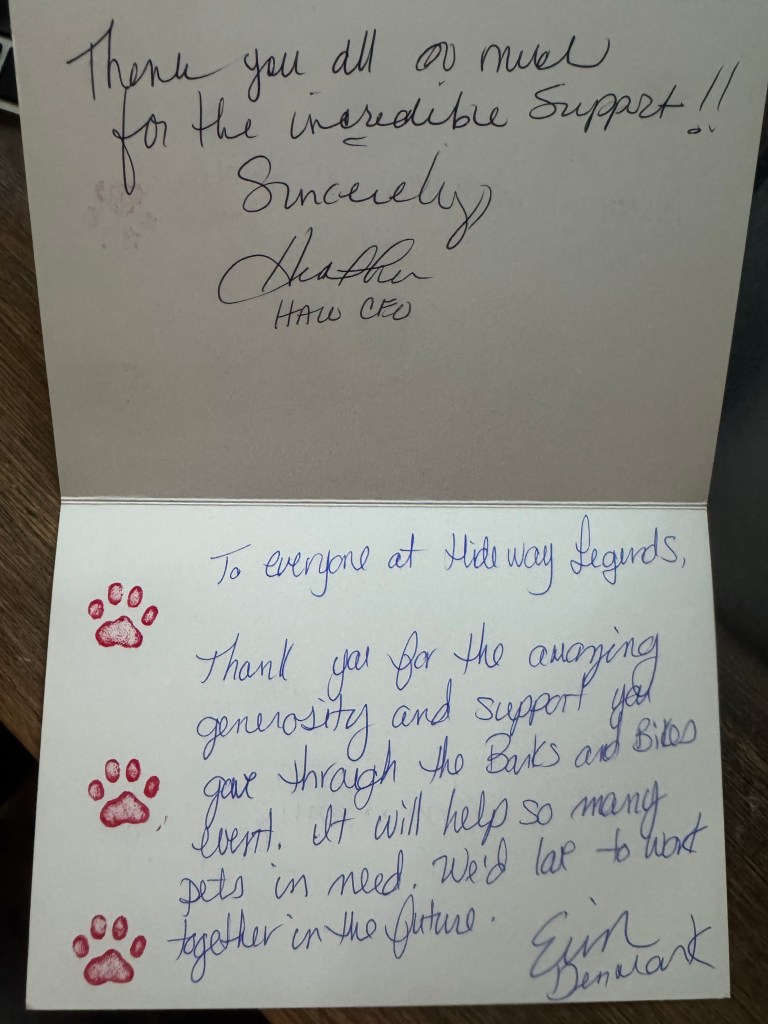 Thank you all so much
for the incredible Support!!
Sincerely,
Heather
HAW CEO
To everyone at Hideway Legends,
Thank you for the amazing
generosity and support you
gave through the Barks and Bikes
event. It will help so many
pets in need. We'd love to work
together in the future.
Erin
Denmark